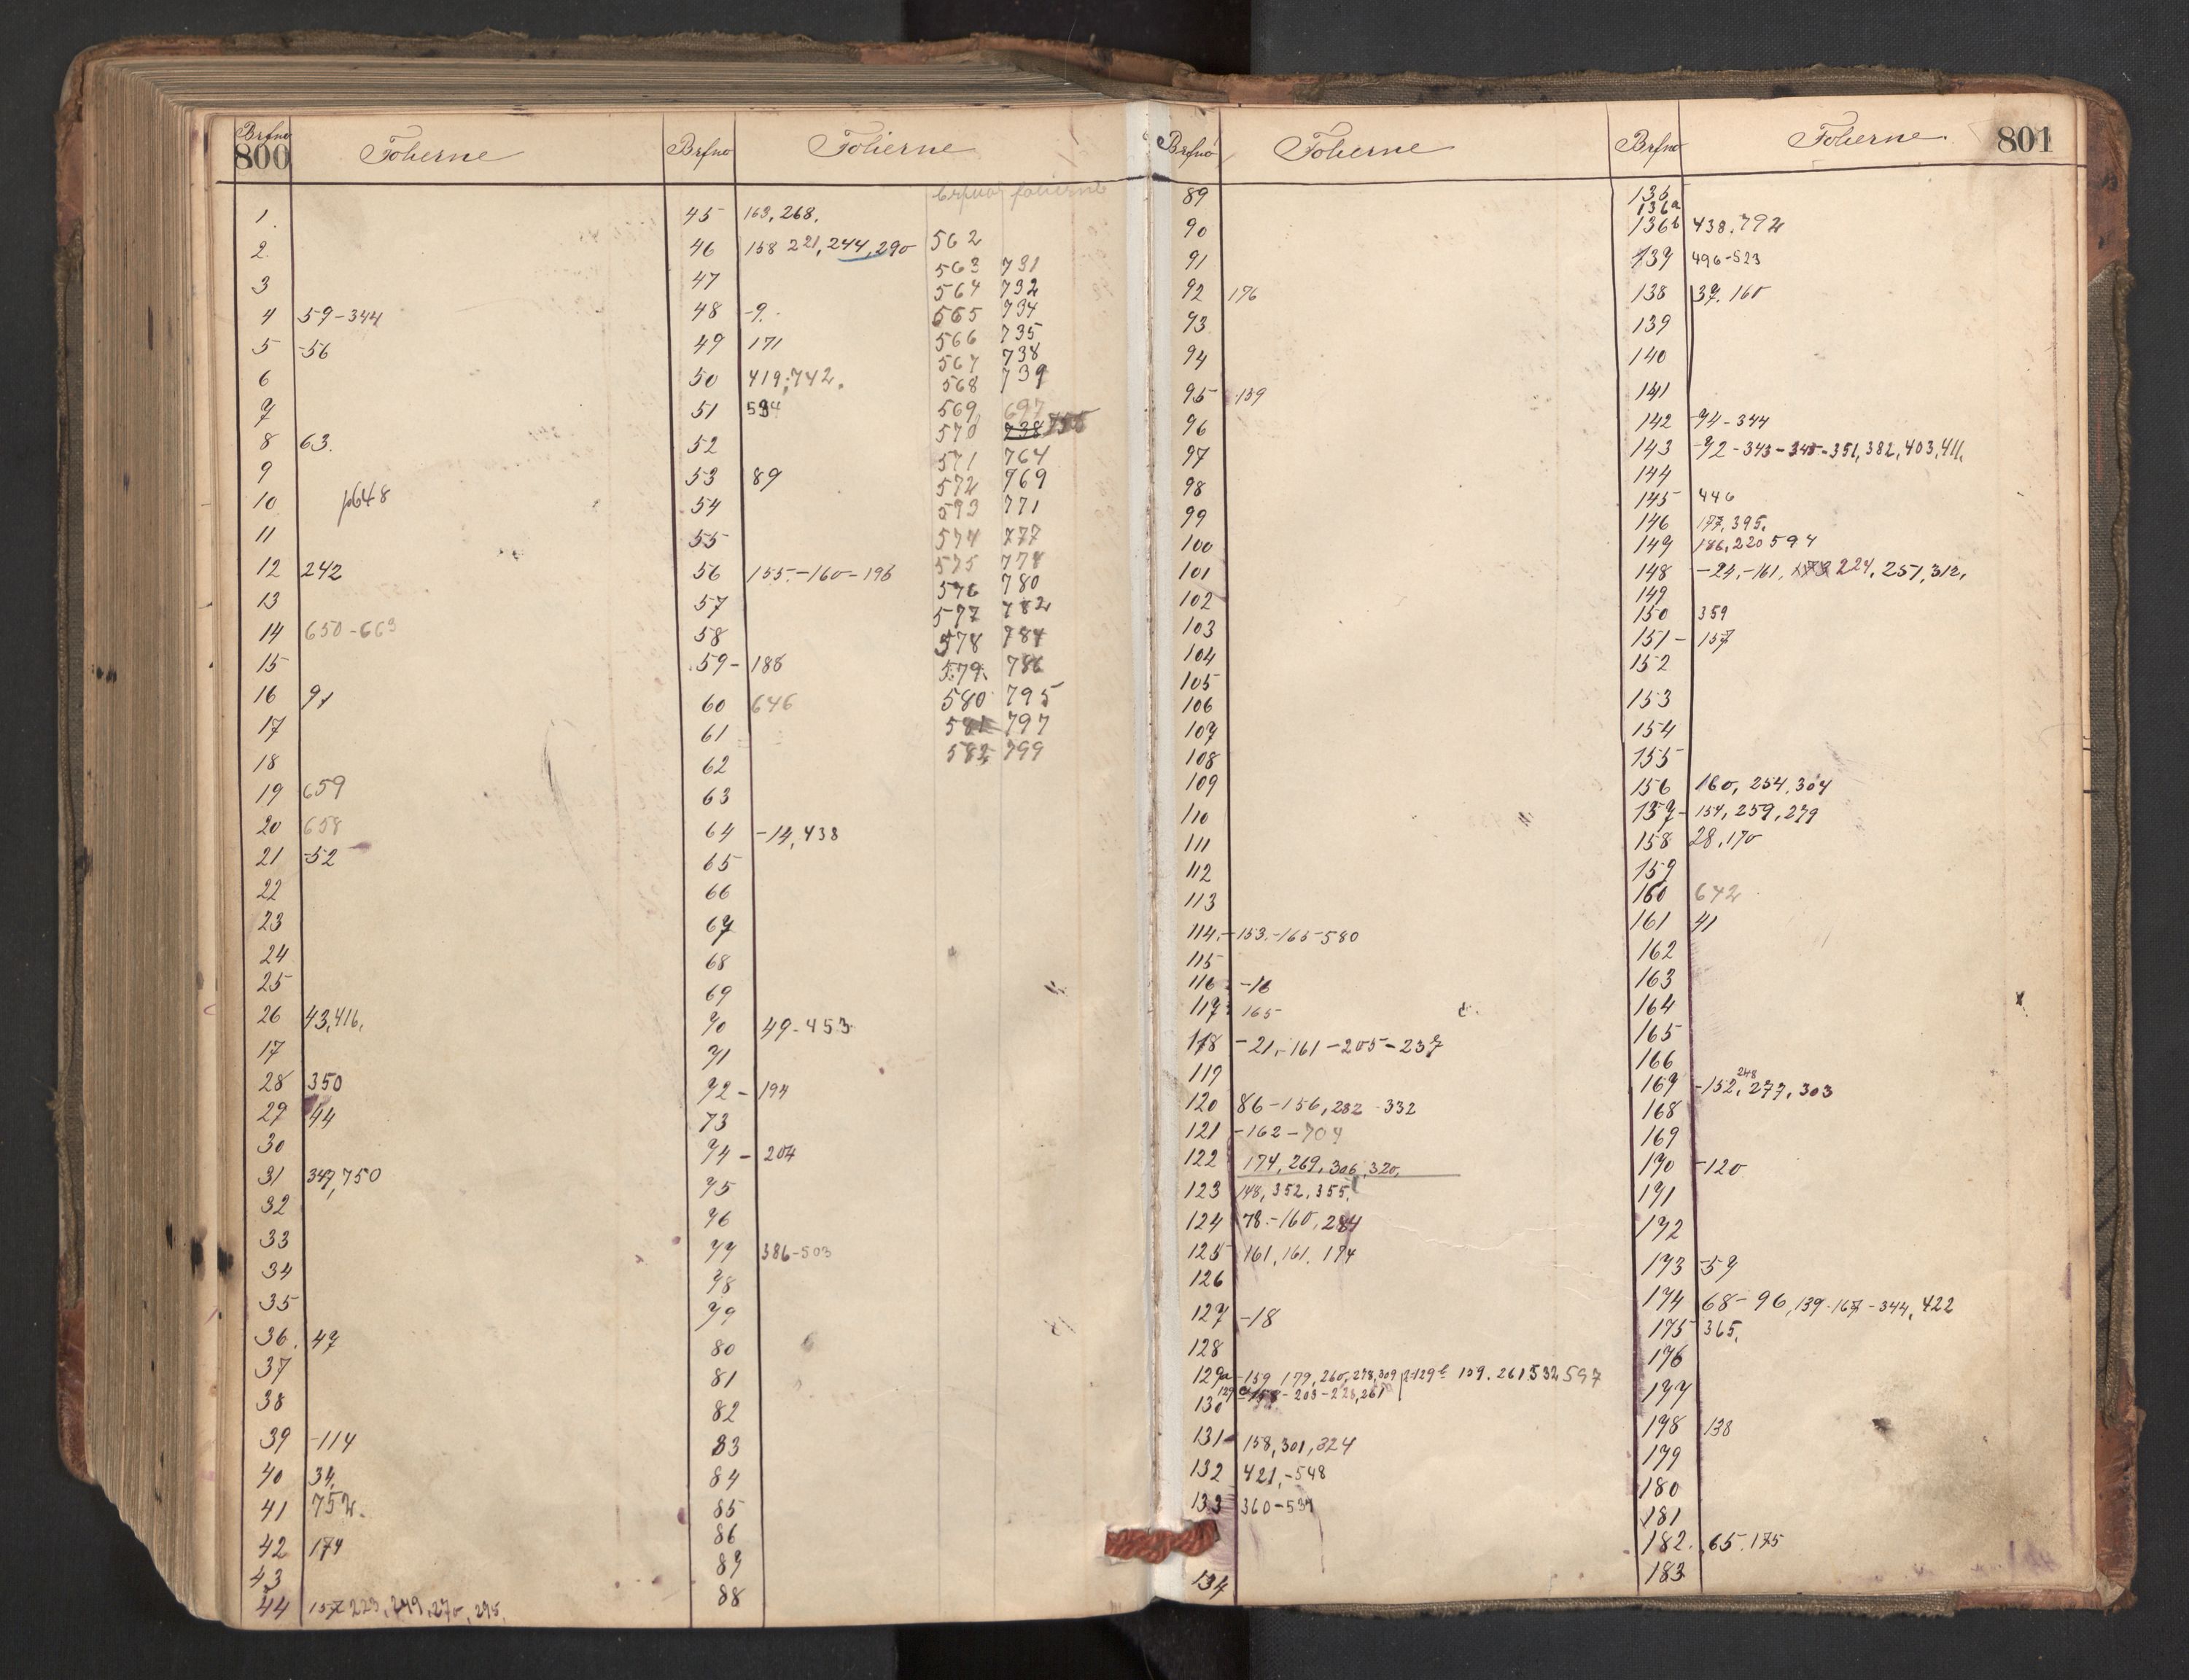 800
Brfno Folierne
1.
2.
3
4 59-344
5 -56
6
7
8 63.
9
10 p648
11
12 242
13
14 650-663
15
16 91
17
18
19 659
20 658
21 -52
22
23
24
25
26 43,416,
17
28 350
29 44
30
31 347,750
32
33
34
35
36. 47
37
38
39 -114
40 34,
41 752.
42 174
43
44 157 223, 249, 270, 295,
Brfno Folierne
45 163, 268.
46 158 221, 244, 290
47
48 -9.
49 171
50 419; 742.
51 594
52
53 89
54
55
56 155.-160-196
57
58
59- 188
60 646
61
62
63
64 -14, 438
65
66
67
68
69
70 49-453
71
72- 194
73
74- 204
75
76
77 386-503
78
79
80
81
82
83
84
85
86
87
88
brfno folierne
562
563 731
564 732
565 734
566 735
567 738
568 739
569, 697
570 738
571 764
572 769
573 771
574 777
575 778
576 780
577 782
578 784
579. 786
580 795
581 797
582 799
801
Brfno Folierne
89
90
91
92 176
93
94
95 -159
96
97
98
99
100
101
102
103
104
105
106
107
108
109
110
111
112
113
114.-153.-165-580
115
116 -16
117 165
118 -21,-161-205-237
119
120 86-156, 282-332
121 -162-704
122 174, 269, 306, 320,
123 148, 352, 355,
124 78.-160, 284
125 161, 161. 174
126
127 -18
128
129a -159 179, 260, 278, 309 129b 159. 261 532 597
129c -158-203-228, 261
130
131 158, 301, 324
132 421,-548
133 360-534
134
Brfno Folierne
135
136a
136b 438.792
137 496-523
138 37.160
139
140
141
142 -94-344
143 -92-343-345-351, 382, 403, 411.
144
145 446
146 177, 395.
147 186, 220 594
148 -24,-161, 173 224, 251, 312,
149
150 359
151- 157
152
153
154
155
156 160, 254, 304
157- 154, 259, 279
158 28, 170
159
160 642
161 41
162
163
164
165
166
167 -152, 248, 277, 303
168
169
170 -120
171
172
173 -59
174 68-96, 139-167-344, 422
175 365,
176
177
178 138
179
180
181
182. 65. 175
183